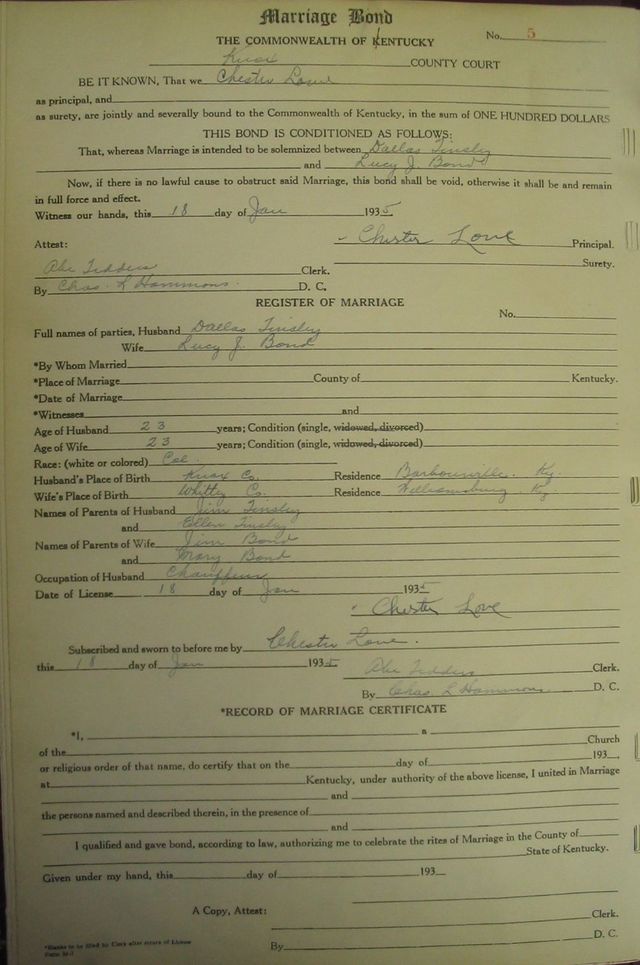 Marriage Bond
No. 5
THE COMMONWEALTH OF KENTUCKY
Knox COUNTY COURT
BE IT KNOWN, That we Chester Love
as principal, and
as surety, are jointly and severally bound to the Commonwealth of Kentucky, in the sum of ONE HUNDRED DOLLARS
THIS BOND IS CONDITIONED AS FOLLOWS:
That, whereas Marriage is intended to be solemnized between Dallas Tinsley
and Lucy J. Bond
Now, if there is no lawful cause to obstruct said Marriage, this bond shall be void, otherwise it shall be and remain
in full force and effect.
Witness our hands, this 18 day of Jan 1935
Chester Love Principal.
Attest:
Surety.
Abe Tedders Clerk.
By Chas. L Hammons. D. C.
REGISTER OF MARRIAGE
No.
Full names of parties, Husband Dallas Tinsley
Wife Lucy J. Bond
*By Whom Married
*Place of Marriage County of Kentucky.
*Date of Marriage
*Witnesses and
Age of Husband 23 years; Condition (single, widowed, divorced)
Age of Wife 23 years; Condition (single, widowed, divorced)
Race: (white or colored) Col.
Husband's Place of Birth Knox Co. Residence Barbourville. Ky.
Wife's Place of Birth Whitly Co. Residence Williamsburg. Ky
Names of Parents of Husband Jim Tinsley
and Ellen Tinsley
Names of Parents of Wife Jim Bond
and Mary Bond
Occupation of Husband Chauffeur
Date of License 18 day of Jan 1935
Chester Love
Subscribed and sworn to before me by Chester Love.
this 18 day of Jan 1935 Abe Tedders Clerk.
By Chas L Hammons D. C.
*RECORD OF MARRIAGE CERTIFICATE
*I, a Church
of the 193
or religious order of that name, do certify that on the day of
at Kentucky, under authority of the above license, I united in Marriage
and
the persons named and described therein, in the presence of
and
I qualified and gave bond, according to law, authorizing me to celebrate the rites of Marriage in the County of
State of Kentucky.
Given under my hand, this day of 193
A Copy, Attest: Clerk.
By D. C.
*Blanks to be filled by Clerk after return of License